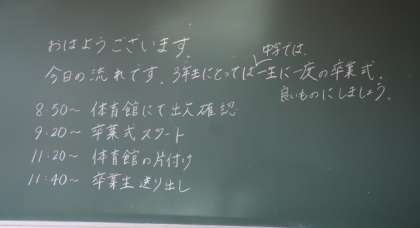 おはようございます。
今日の流れです。3年生にとっては一生に一度の卒業式。
中学では、
良いものにしましょう。
8:50～ 体育館にて出欠確認
9:20～ 卒業式スタート
11:20～ 体育館の片付け
11:40～ 卒業生送り出し